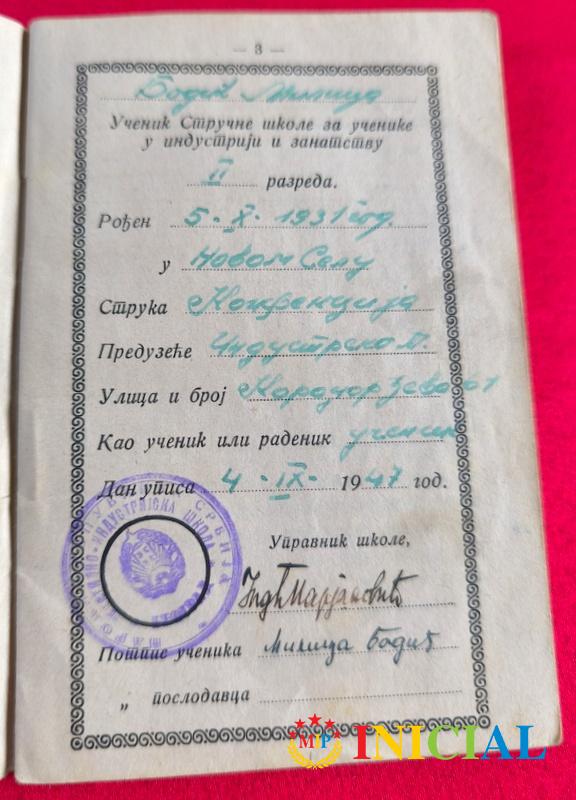 — 3 —
Бодић Милица
Ученик Стручне школе за ученике
у индустрији и занатству
II разреда.
Рођен 5 - X - 1931 год.
у Новом Селу
Струка Конфекција
Предузеће Индустриско П.
Улица и број Карађорђева 61
Као ученик или раденик ученик
Дан уписа 4 - IX - 1947 год.
СРБИЈА
ИНДУСТРИЈСКА ШКОЛА
Управник школе,
Потпис ученика Милица Бодић
„ послодавца
MP INICIAL